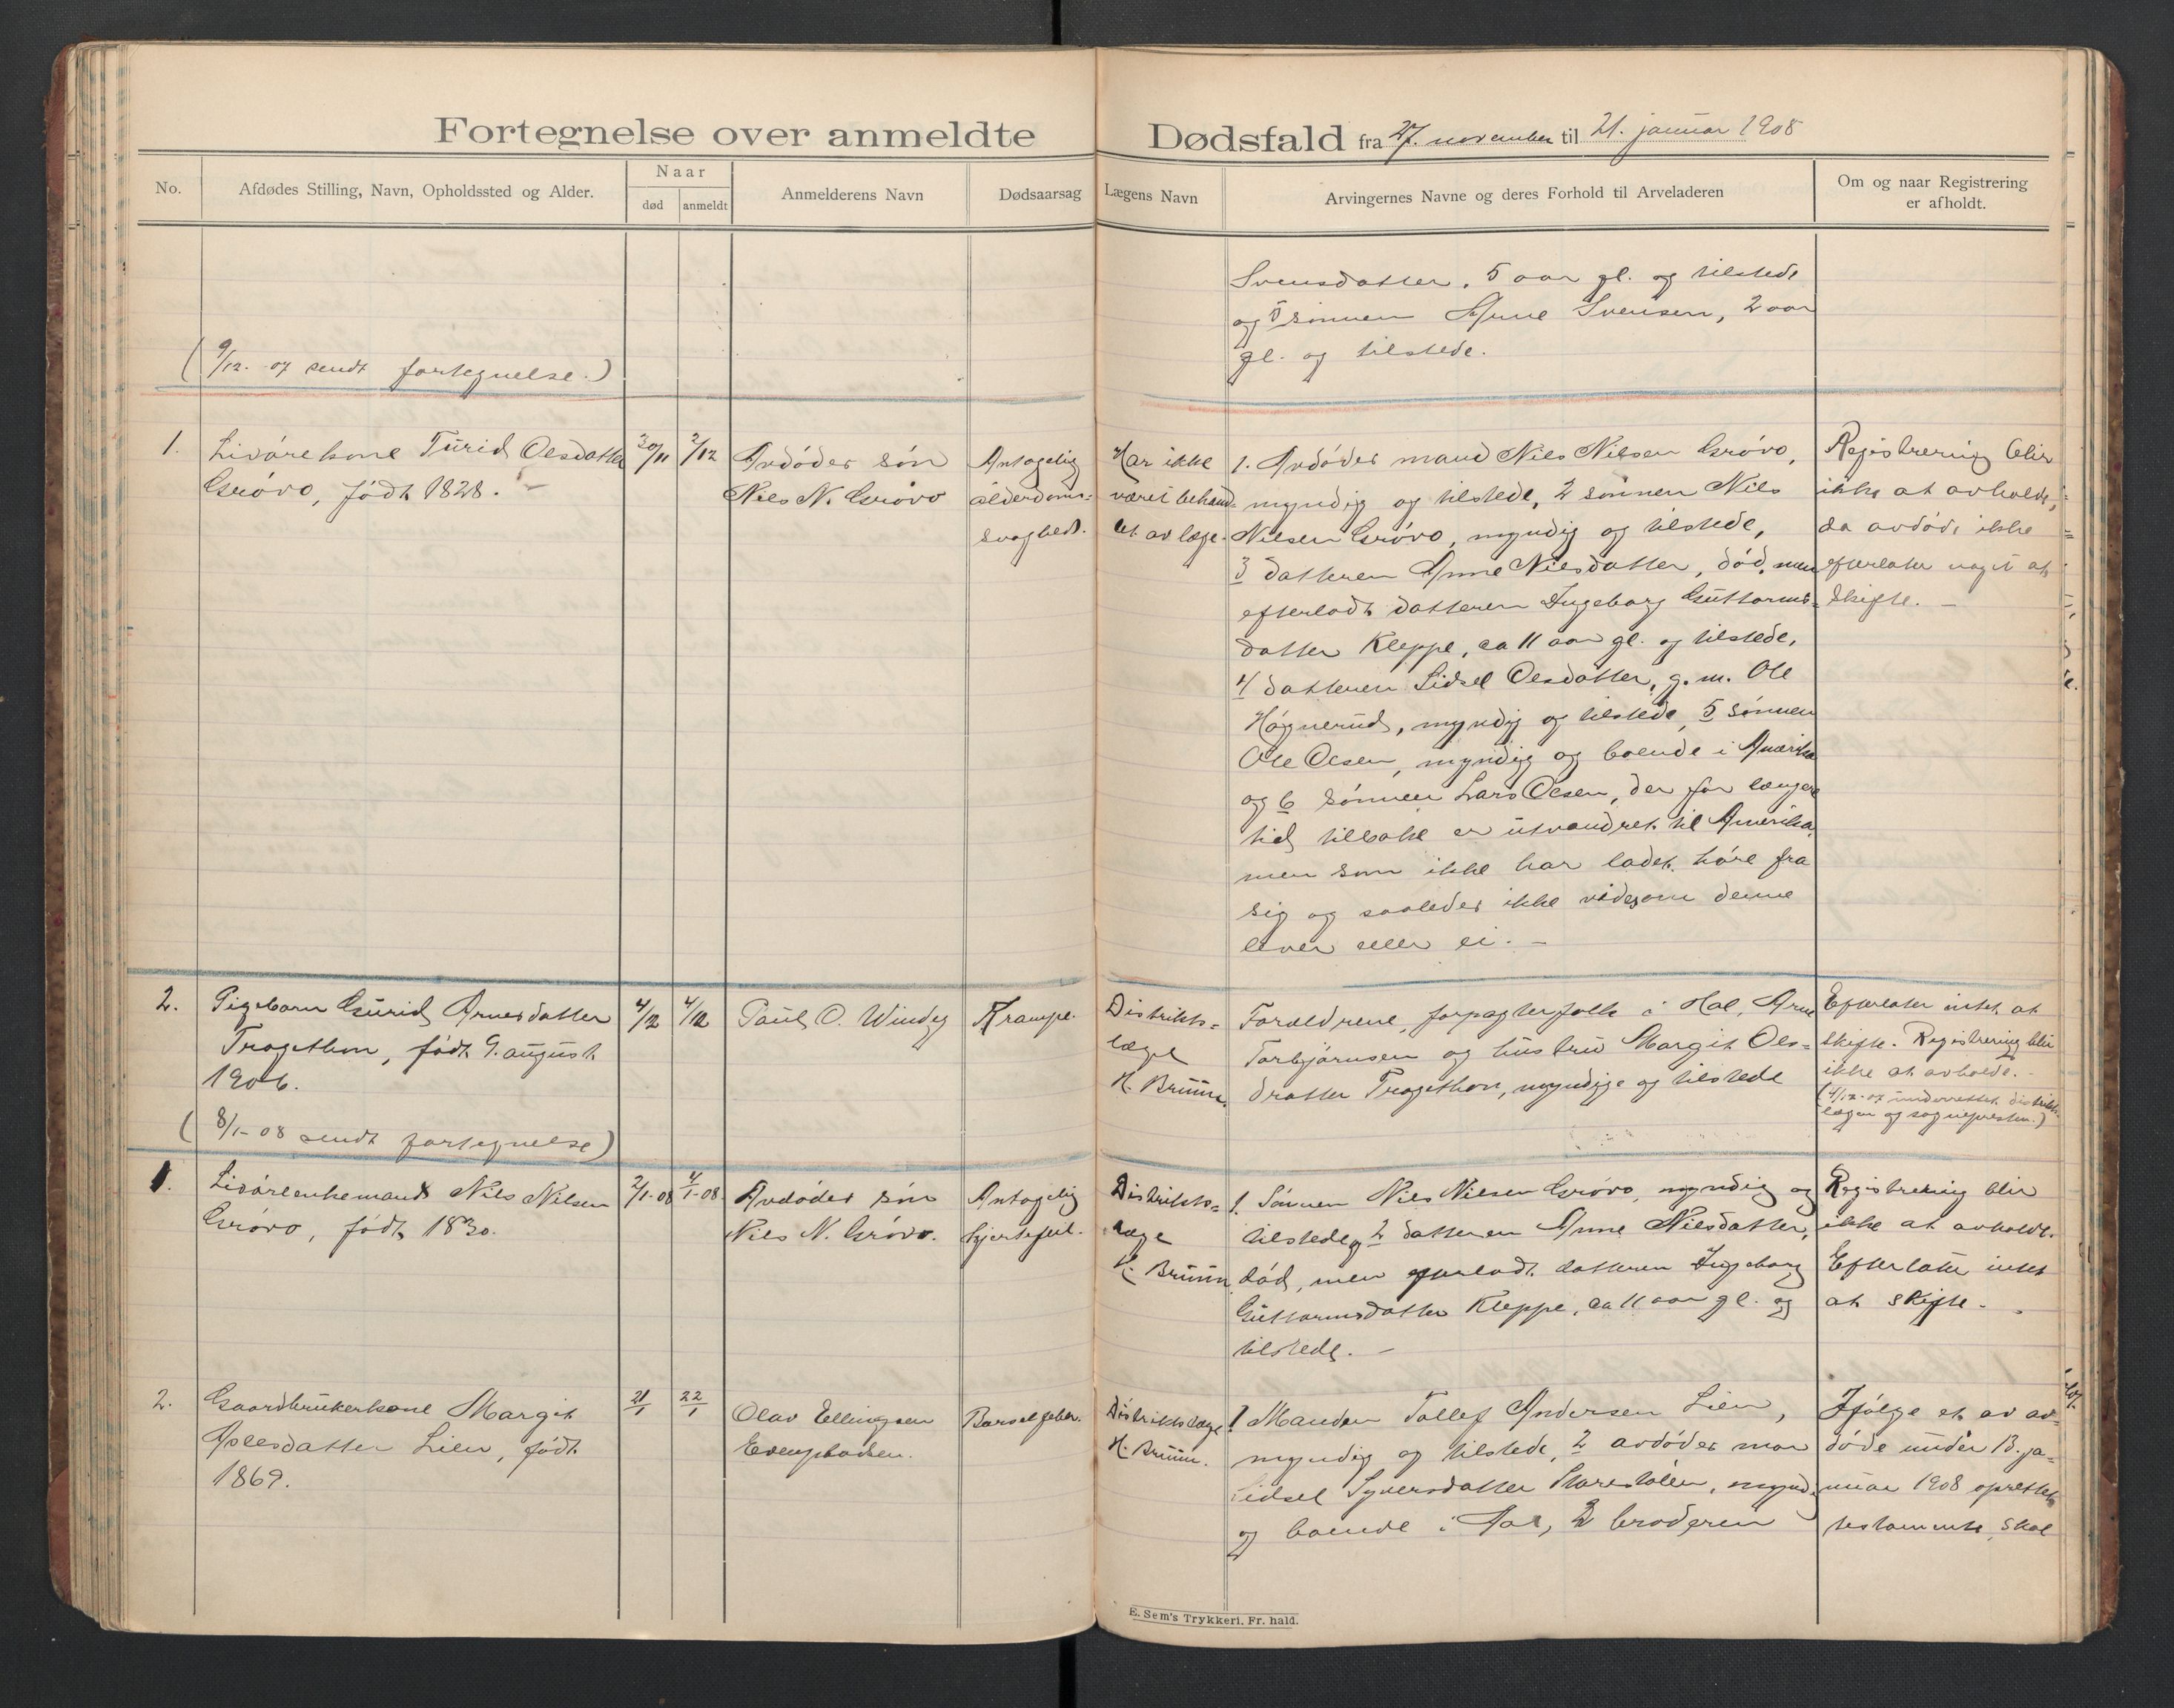 Fortegnelse over anmeldte Dødsfald fra 27. november til 21. januar 1908
No.
Afdødes Stilling, Navn, Opholdssted og Alder.
Naar
død
anmeldt
Anmelderens Navn
Dødsaarsag
Lægens Navn
Arvingernes Navne og deres Forhold til Arveladeren
Om og naar Registrering
er afholdt.
Svensdatter, 5 aar gl. og tilstede
og 5 sønnen Arne Svensen, 2 aar
gl. og tilstede.
(9/12-07 sendt fortegnelse.)
1.
Livørekone Turid Olsdatter
Grøvo, født 1828. –
30/11
2/12
Avdødes søn
Niels N. Grøvo
Antagelig
alderdoms-
svaghed.
Har ikke
været behand-
let av læge.
1. Avdødes mand Niels Nilsen Grøvo,
myndig og tilstede, 2 sønnen Niels
Nielsen Grøvo, myndig og tilstede,
3 datteren Anne Nielsdatter, død, men
efterladt datteren Ingeborg Guttorms-
datter Kleppe, ca 11 aar gl. og tilstede,
4 datteren Lidsel Olsdatter, g. m. Ole
Høgnerud, myndig og tilstede, 5 sønnen
Ole Olsen, myndig og boende i Amerika
og 6 sønnen Lars Olsen, der for længere
tid tilbake er utvandret til Amerika,
men som ikke har ladet høre fra
sig og saaledes ikke vides om denne
lever eller ei. –
Registrering blir
ikke at avholde,
da avdøde ikke
efterlater noget at
skifte. –
2.
Pigebarn Gurid Arnesdatter
Tragethon, født 9. august
1906.
(8/1-08 sendt fortegnelse)
4/12
4/12
Paul O. Windeg
Krampe.
Distrikts-
læge
H. Bruun.
Forældrene, forpagterfolk i Hol, Arne
Torbjørnsen og hustru Margit Ols-
dratter Tragethon, myndige og tilstede
Efterlater intet at
skifte. Registrering blir
ikke at avholde. –
(4/12-07 underrettet distrikts-
lægen og sognepresten.)
1.
Livøreenkemand Niels Nilsen
Grøvo, født 1830.
2/1-08
4/1-08.
Avdødes søn
Niels N. Grøvo.
Antagelig
hjertefeil.
Distrikts-
læge
H. Bruun
1. Sønnen Niels Nielsen Grøvo, myndig og
tilstede og 2 datteren Anne Nielsdatter,
død, men efterladt datteren Ingeborg
Guttormsdatter Kleppe, ca 11 aar gl. og
tilstede. –
Registrering blir
ikke at avholde.
Efterlater intet
at skifte. –
2.
Gaardbrukerkone Margit
Aslesdatter Lien, født
1869.
21/1
22/1
Olav Ellingsen
Barselfeber.
Distriktslæge
H. Bruun.
1 Manden Tollef Andersen Lien,
myndig og tilstede, 2 avdødes mor
Lidsel Syversdatter, mynd.
og boende i Aal, 3 broderen
Ifølge et av av-
døde under 13. ja-
nuar 1908 oprettet
testamente, skal
E. Sem's Trykkeri. Fr. hald.